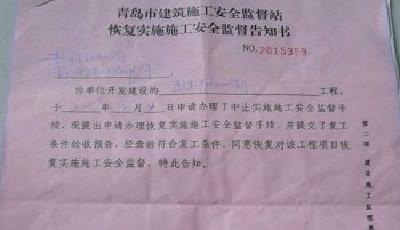 青岛市建筑施工安全监督站
恢复实施施工安全监督告知书
NO.2015359
你单位开发建设的 工程,
于 年 月 日申请办理了中止实施施工安全监督手
续，现提出申请办理恢复实施施工安全监督手续，并提交了复工
条件验收报告，经查验符合复工条件，同意恢复对该工程项目恢
复实施施工安全监督，特此告知。
第二联 建设施工监理